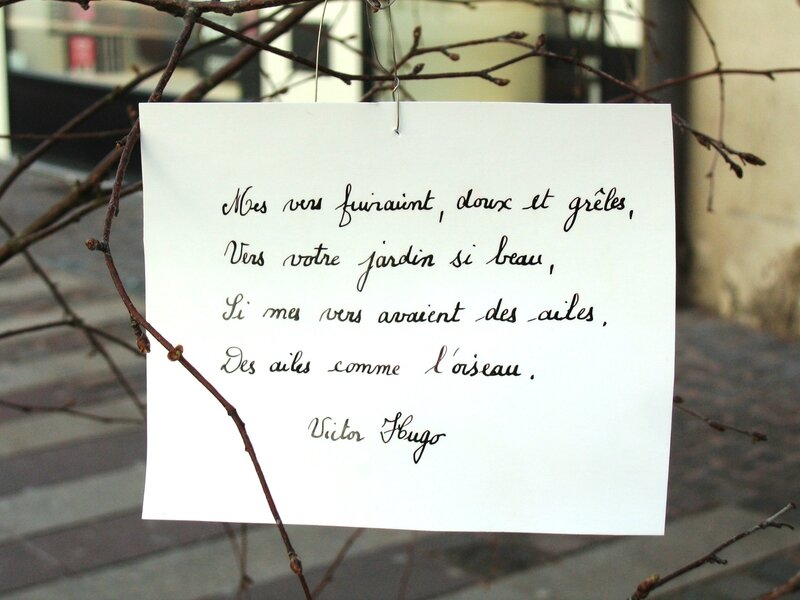 Mes vers fuiraient, doux et grêles,
Vers votre jardin si beau,
Si mes vers avaient des ailes.
Des ailes comme l'oiseau.
Victor Hugo